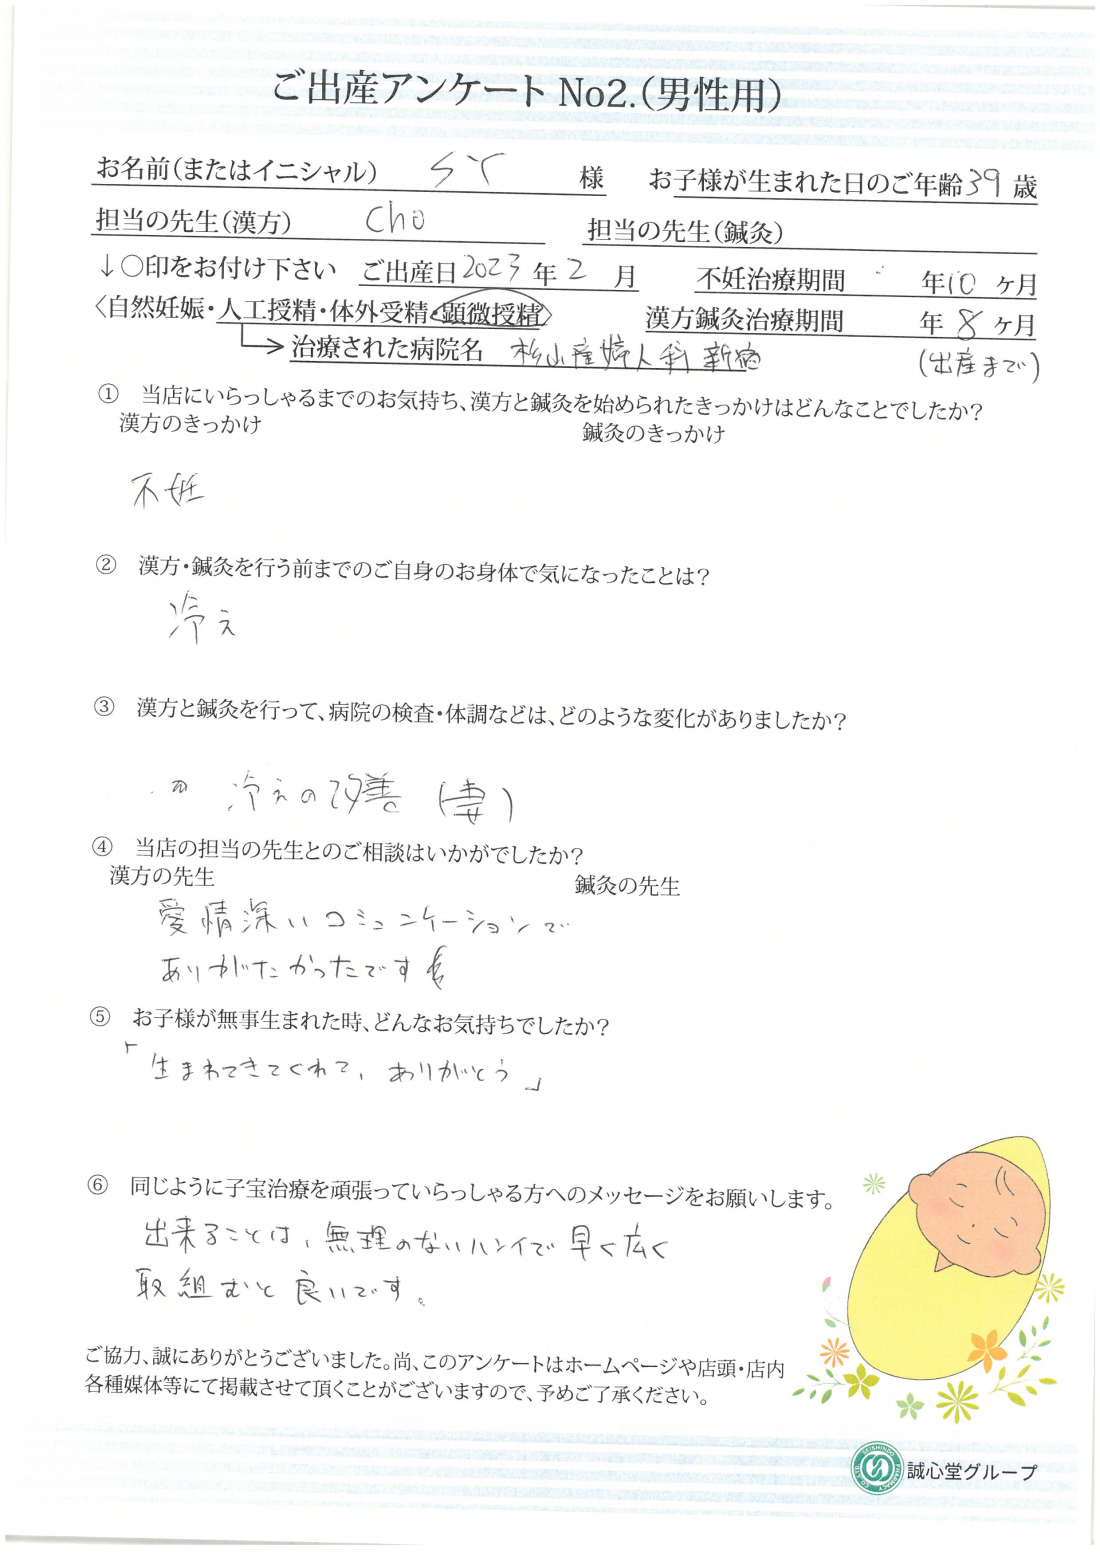 ご出産アンケート No2.(男性用)
お名前(またはイニシャル) SY 様 お子様が生まれた日のご年齢39歳
担当の先生(漢方) Cho 担当の先生(鍼灸)
↓○印をお付け下さい ご出産日2023年2月 不妊治療期間 年10ヶ月
〈自然妊娠・人工授精・体外受精・顕微授精〉 漢方鍼灸治療期間 年8ヶ月
治療された病院名 杉山産婦人科新宿 (出産まで)
① 当店にいらっしゃるまでのお気持ち、漢方と鍼灸を始められたきっかけはどんなことでしたか?
漢方のきっかけ 鍼灸のきっかけ
不妊
② 漢方・鍼灸を行う前までのご自身のお身体で気になったことは?
冷え
③ 漢方と鍼灸を行って、病院の検査・体調などは、どのような変化がありましたか?
冷えの改善(妻)
④ 当店の担当の先生とのご相談はいかがでしたか?
漢方の先生 鍼灸の先生
愛情深いコミュニケーションで
ありがたかったです
⑤ お子様が無事生まれた時、どんなお気持ちでしたか?
「生まれてきてくれて、ありがとう」
⑥ 同じように子宝治療を頑張っていらっしゃる方へのメッセージをお願いします。
出来ることは、無理のないハンイで早く広く
取組むと良いです。
ご協力、誠にありがとうございました。尚、このアンケートはホームページや店頭・店内
各種媒体等にて掲載させて頂くことがございますので、予めご了承ください。
SEISHINDO PHARMACY CO.LTD.
誠心堂グループ